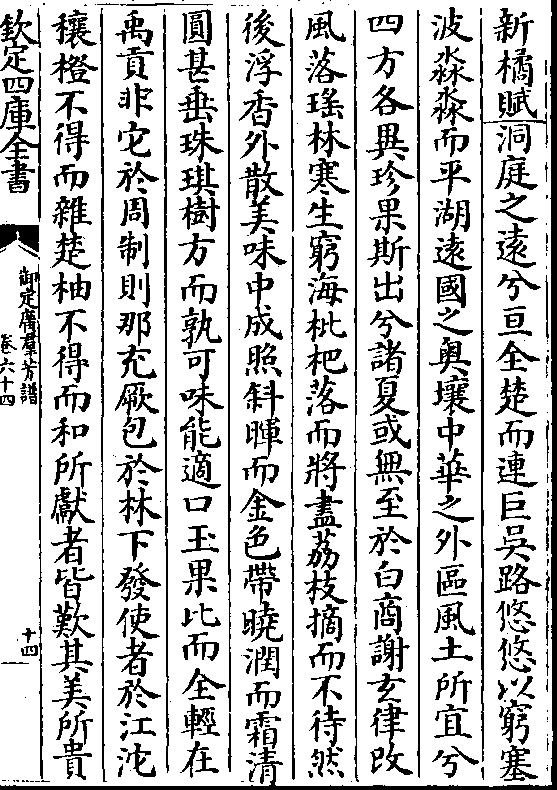 新橘賦洞庭之遠兮亘全楚而連巨吳路悠悠以窮塞
波淼淼而平湖遠國之奧壤中華之外區風土所宜兮
四方各異珍果斯出兮諸夏或無至於白商謝玄律改
風落瑤林寒生窮海枇杷落而將盡荔枝摘而不待然
後浮香外散美味中成照斜暉而金色帶曉潤而霜清
圓甚垂珠琪樹方而孰可味能適口玉果比而全輕在
禹貢非它於周制則那充厥包於林下發使者於江沱
穰橙不得而雜楚柚不得而和所獻者皆歎其美所貴
欽定四庫全書
御定廣羣芳譜
卷六十四
十四